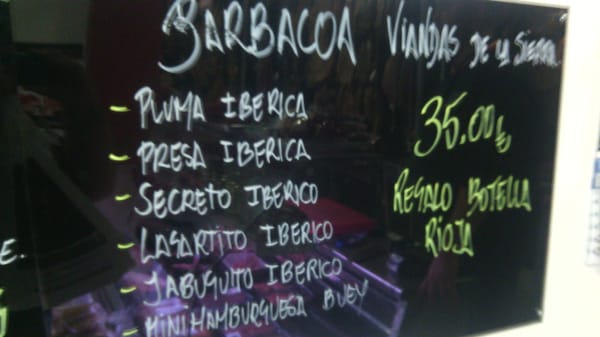 BARBACOA VIANDAS DE LA SIERRA
- PLUMA IBERICA
- PRESA IBERICA
- SECRETO IBERICO
- LAGARTITO IBERICO
- JABUGUITO IBERICO
- MINI HAMBURGUESA BUEY
35.00€
REGALO BOTELLA
RIOJA
E.